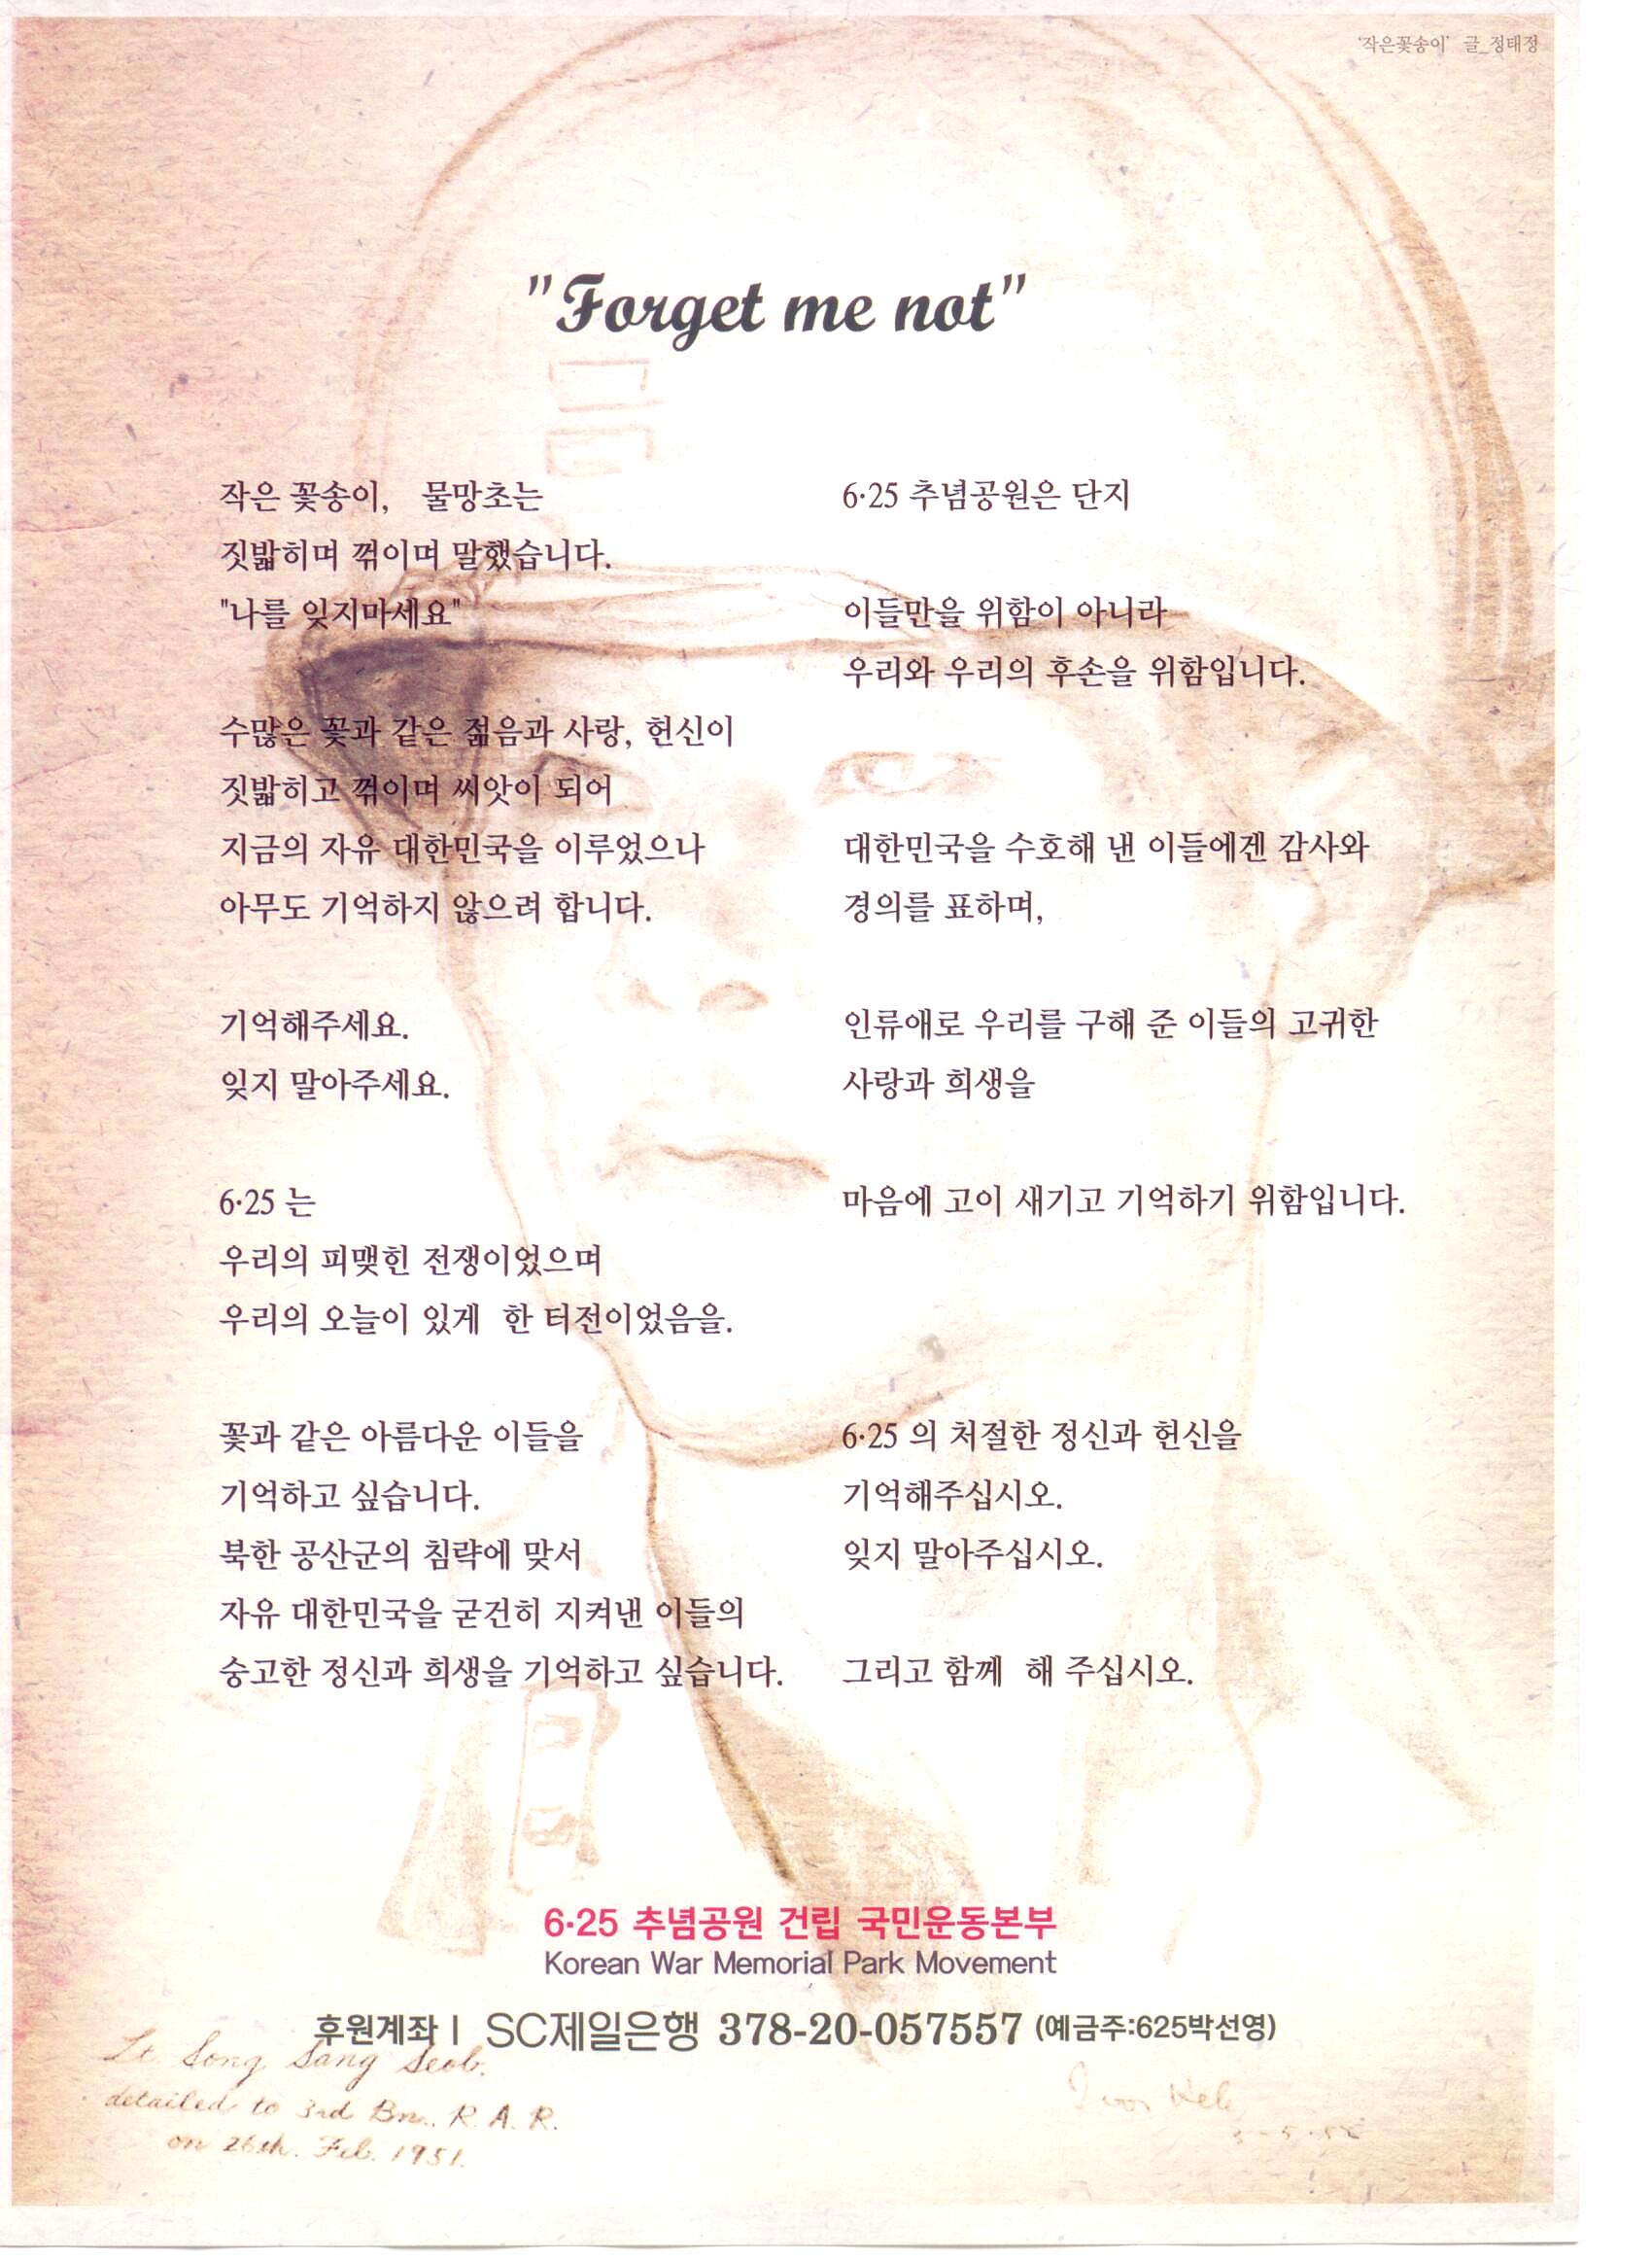 '작은꽃송이' 글_정태정
"Forget me not"
작은 꽃송이, 물망초는
짓밟히며 꺾이며 말했습니다.
"나를 잊지마세요"
수많은 꽃과 같은 젊음과 사랑, 헌신이
짓밟히고 꺾이며 씨앗이 되어
지금의 자유 대한민국을 이루었으나
아무도 기억하지 않으려 합니다.
기억해주세요.
잊지 말아주세요.
6·25 는
우리의 피맺힌 전쟁이었으며
우리의 오늘이 있게 한 터전이었음을.
꽃과 같은 아름다운 이들을
기억하고 싶습니다.
북한 공산군의 침략에 맞서
자유 대한민국을 굳건히 지켜낸 이들의
숭고한 정신과 희생을 기억하고 싶습니다.
6·25 추념공원은 단지
이들만을 위함이 아니라
우리와 우리의 후손을 위함입니다.
대한민국을 수호해 낸 이들에겐 감사와
경의를 표하며,
인류애로 우리를 구해 준 이들의 고귀한
사랑과 희생을
마음에 고이 새기고 기억하기 위함입니다.
6·25 의 처절한 정신과 헌신을
기억해주십시오.
잊지 말아주십시오.
그리고 함께 해 주십시오.
6·25 추념공원 건립 국민운동본부
Korean War Memorial Park Movement
후원계좌 | SC제일은행 378-20-057557 (예금주:625박선영)
Lt Song Sang Seob.
detailed to 3rd Bn. R. A. R.
on 26th. Feb. 1951.